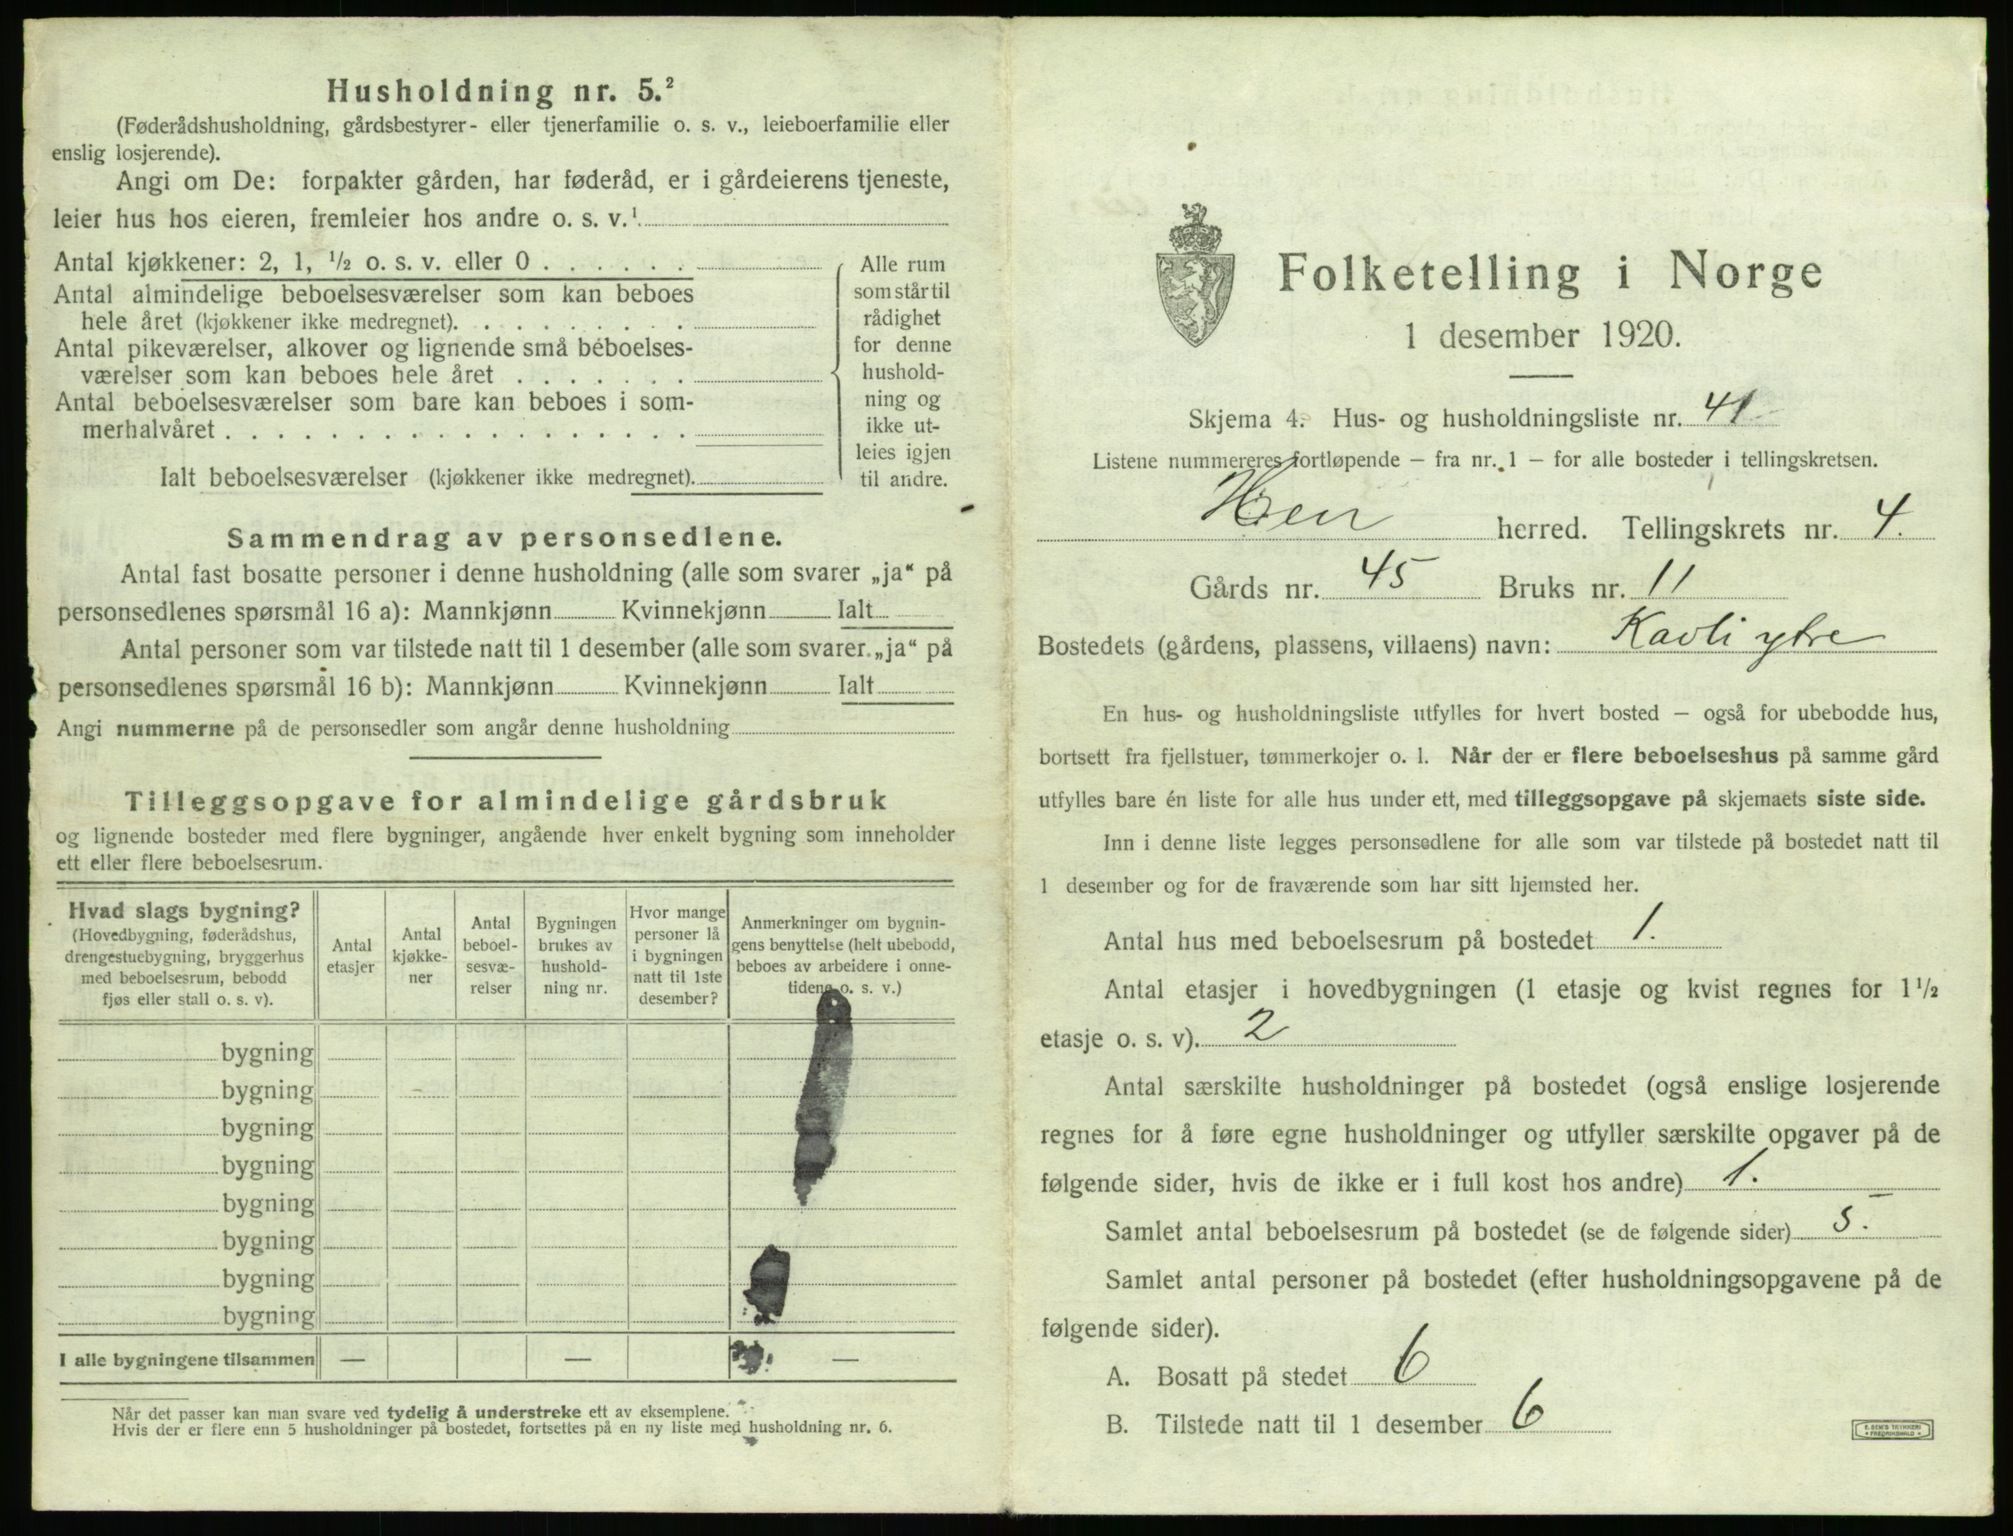 Husholdning nr. 5.²
(Føderådshusholdning, gårdsbestyrer- eller tjenerfamilie o. s. v., leieboerfamilie eller
enslig losjerende).
Angi om De: forpakter gården, har føderåd, er i gårdeierens tjeneste,
leier hus hos eieren, fremleier hos andre o. s. v.¹
Antal kjøkkener: 2, 1, ½ o. s. v. eller 0 . . . . . .
Antal almindelige beboelsesværelser som kan beboes
hele året (kjøkkener ikke medregnet). . . . . . . . .
Antal pikeværelser, alkover og lignende små beboelses-
værelser som kan beboes hele året . . . . . . .
Antal beboelsesværelser som bare kan beboes i som-
merhalvåret . . . . . . . . . . . . . . . . . .
Ialt beboelsesværelser (kjøkkener ikke medregnet).
Alle rum
som står til
rådighet
for denne
hushold-
ning og
ikke ut-
leies igjen
til andre.
Sammendrag av personsedlene.
Antal fast bosatte personer i denne husholdning (alle som svarer „ja“ på
personsedlenes spørsmål 16 a): Mannkjønn Kvinnekjønn Ialt
Antal personer som var tilstede natt til 1 desember (alle som svarer „ja“ på
personsedlenes spørsmål 16 b): Mannkjønn Kvinnekjønn Ialt
Angi nummerne på de personsedler som angår denne husholdning
Tilleggsopgave for almindelige gårdsbruk
og lignende bosteder med flere bygninger, angående hver enkelt bygning som inneholder
ett eller flere beboelsesrum.
Hvad slags bygning?
(Hovedbygning, føderådshus,
drengestuebygning, bryggerhus
med beboelsesrum, bebodd
fjøs eller stall o. s. v).
Antal
etasjer
Antal
kjøkke-
ner
Antal
beboel-
sesvæ-
relser
Bygningen
brukes av
hushold-
ning nr.
Hvor mange
personer lå
i bygningen
natt til 1ste
desember?
Anmerkninger om bygnin-
gens benyttelse (helt ubebodd,
beboes av arbeidere i onne-
tidene o. s. v.)
bygning
bygning
bygning
bygning
bygning
bygning
bygning
bygning
I alle bygningene tilsammen — — —
Når det passer kan man svare ved tydelig å understreke ett av eksemplene.
Hvis der er flere enn 5 husholdninger på bostedet, fortsettes på en ny liste med husholdning nr. 6.
Folketelling i Norge
1 desember 1920.
Skjema 4. Hus- og husholdningsliste nr. 41
Listene nummereres fortløpende – fra nr. 1 – for alle bosteder i tellingskretsen.
Hen herred. Tellingskrets nr. 4.
Gårds nr. 45 Bruks nr. 11
Bostedets (gårdens, plassens, villaens) navn: Kavli ytre
En hus- og husholdningsliste utfylles for hvert bosted – også for ubebodde hus,
bortsett fra fjellstuer, tømmerkojer o. l. Når der er flere beboelseshus på samme gård
utfylles bare én liste for alle hus under ett, med tilleggsopgave på skjemaets siste side.
Inn i denne liste legges personsedlene for alle som var tilstede på bostedet natt til
1 desember og for de fraværende som har sitt hjemsted her.
Antal hus med beboelsesrum på bostedet 1.
Antal etasjer i hovedbygningen (1 etasje og kvist regnes for 1½
etasje o. s. v). 2
Antal særskilte husholdninger på bostedet (også enslige losjerende
regnes for å føre egne husholdninger og utfyller særskilte opgaver på de
følgende sider, hvis de ikke er i full kost hos andre) 1.
Samlet antal beboelsesrum på bostedet (se de følgende sider) 5.
Samlet antal personer på bostedet (efter husholdningsopgavene på de
følgende sider).
A. Bosatt på stedet 6
B. Tilstede natt til 1 desember 6